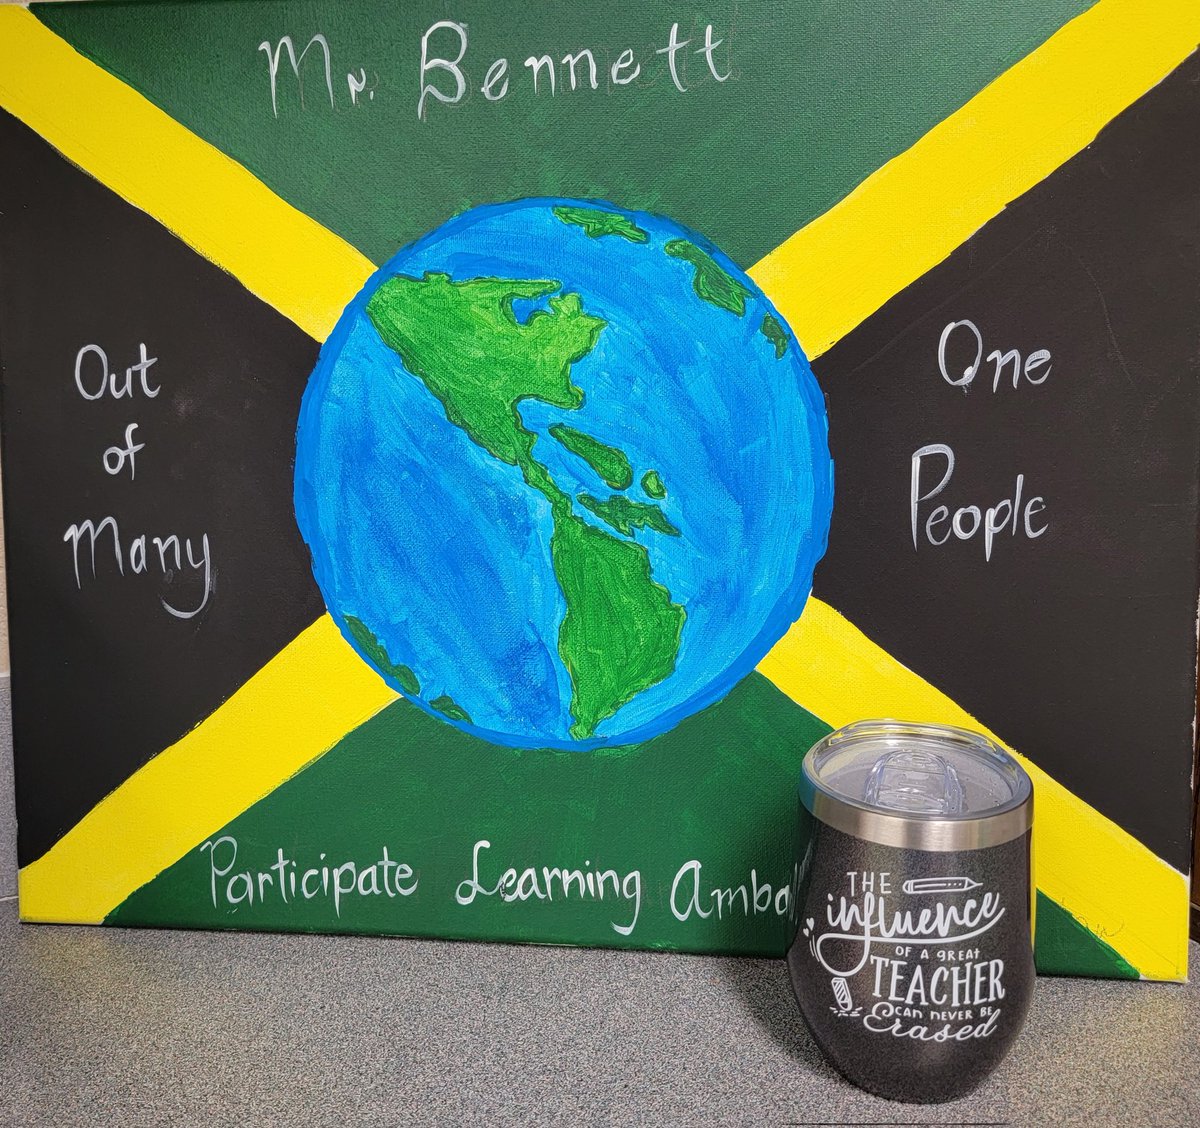 Mr. Bennett
Out
of
Many
One
People
Participate Learning Amba
THE
influence
OF A GREAT
TEACHER
CAN NEVER BE
Erased